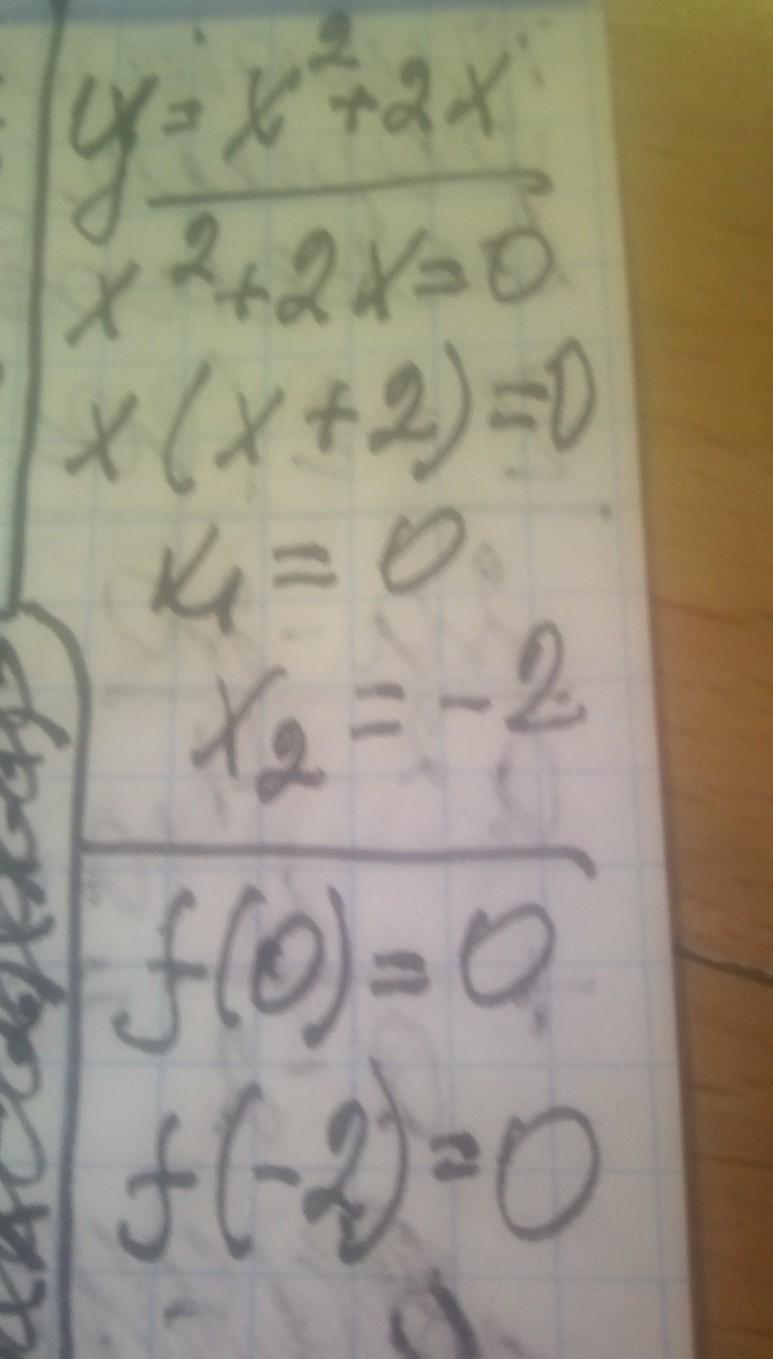 y = x²+2x
x²+2x=0
x(x+2)=0
x₁ = 0
x₂ = -2
f(0)=0
f(-2)=0